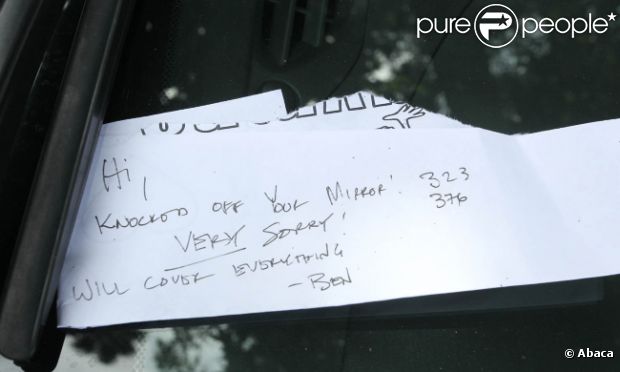 pure people
Hi,
KNOCKED OFF YOUR MIRROR! 323
376
VERY SORRY!
WILL COVER EVERYTHING
-BEN
© Abaca